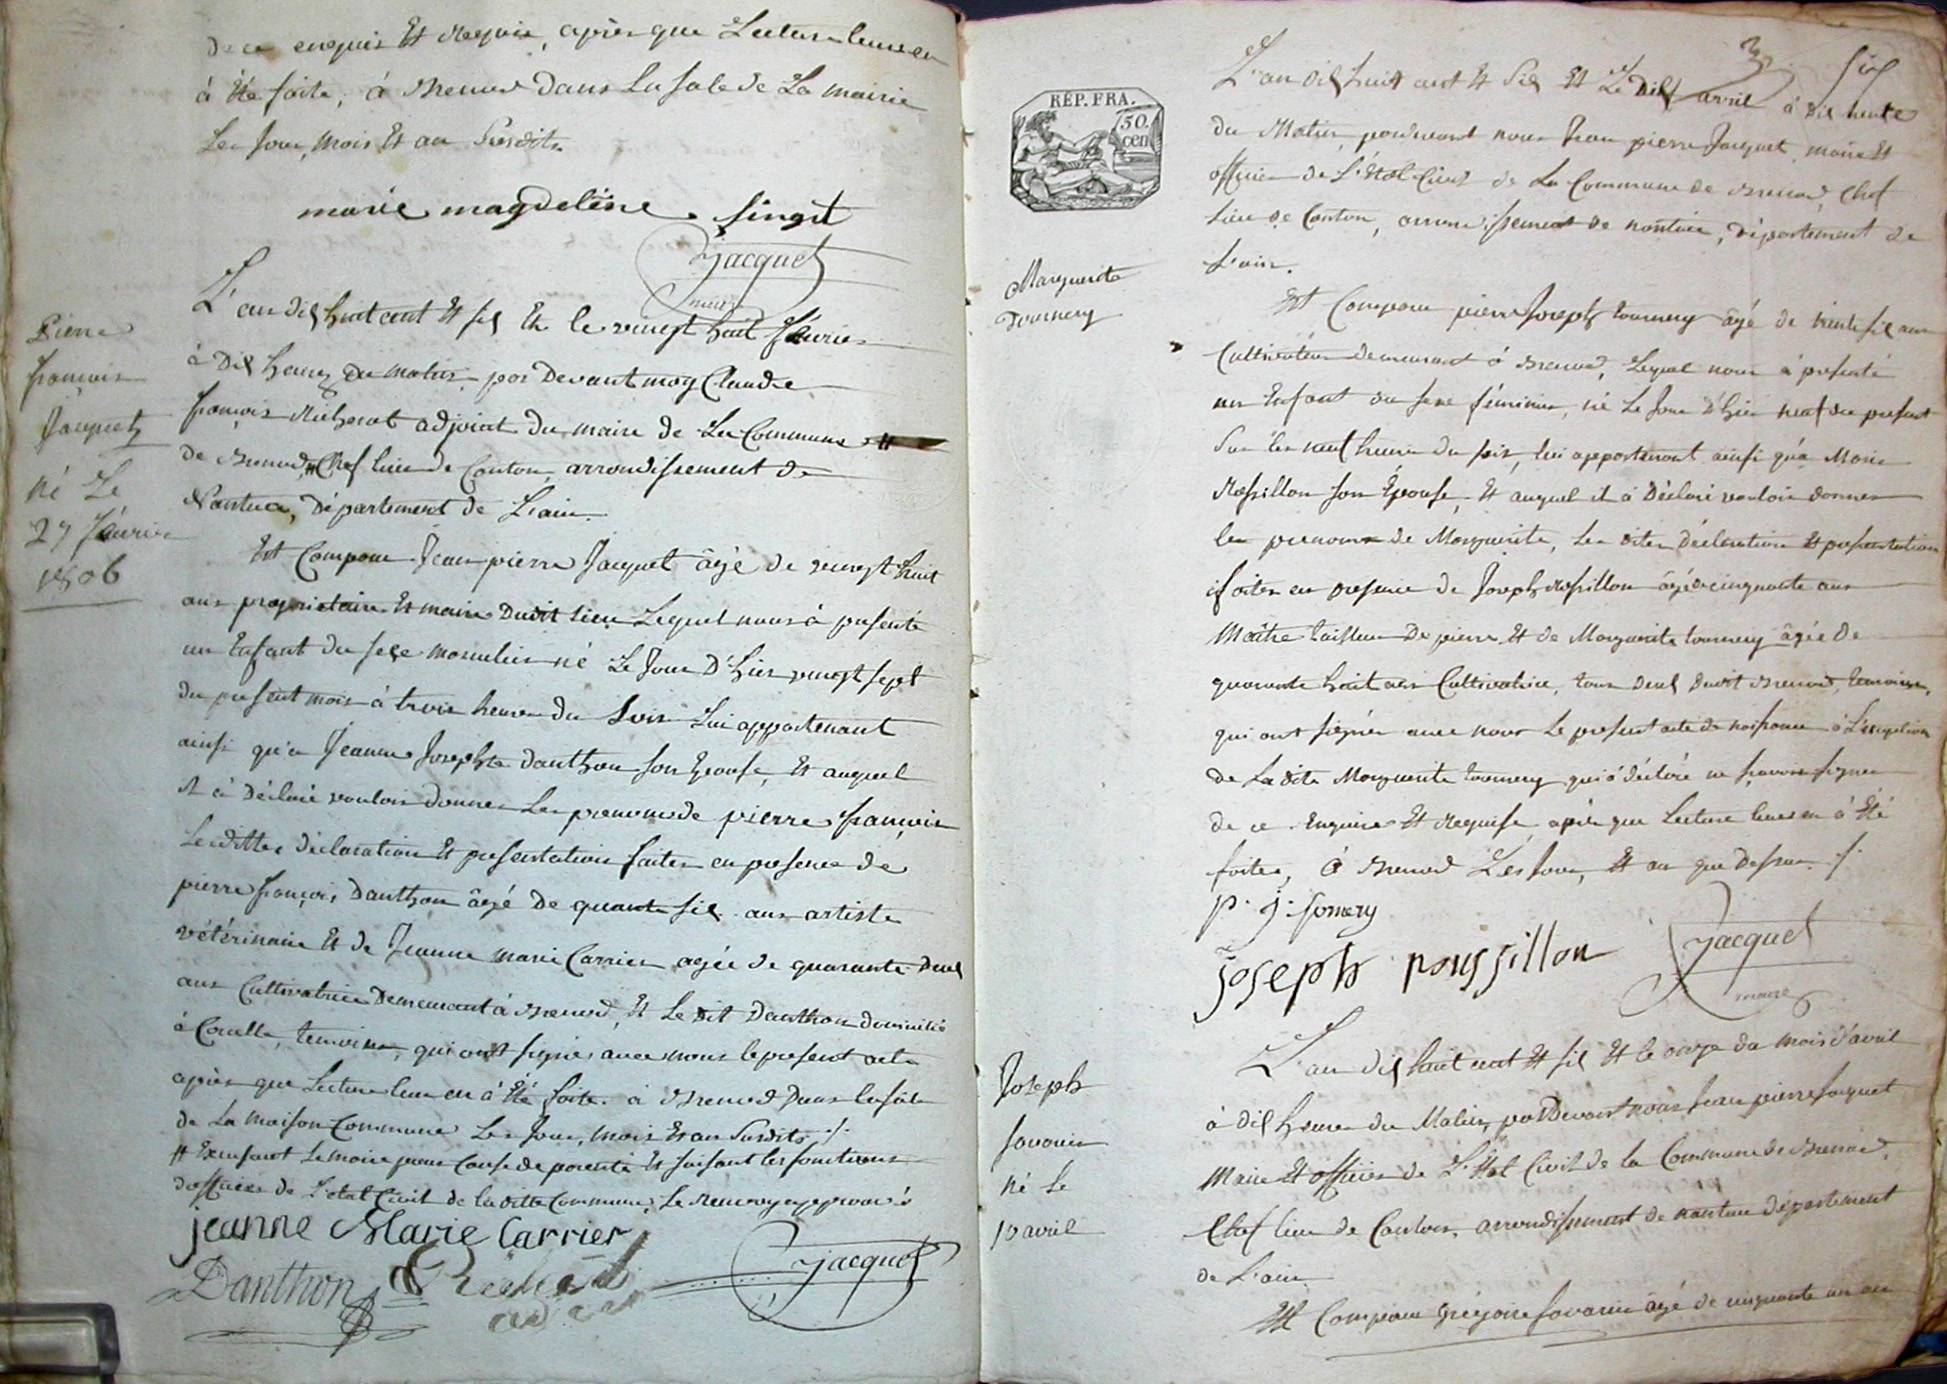 de ce enquis et requis, après que Lecture leur en
à été faite, à Brenod dans La sale de La mairie
Les Jour, mois Et an susdits.
marie magdeleine singit
Jacquet
maire
Pierre
françois
Jacquet
né Le
27 février
1806
L'an dix huit cent Et six Et le vingt huit février
à dix heures du matin, par devant moy Claude
françois Richerot adjoint du maire de La Commune #
de Brenod, Chef lieu de Canton, arrondissement de
Nantua, Département de L'ain.
Est Comparu Jean pierre Jacquet âgé de vingt huit
ans propriétaire Et maire Dudit Lieu Lequel nous à présenté
un Enfant du sexe masculin né Le Jour D'hier vingt sept
du présent mois à trois heures du soir Lui appartenant
ainsi qu'a Jeanne Josephte Danthon son Epouse, Et auquel
il à Déclaré vouloir donner Les prenoms de pierre françois
Lesdittes déclaration Et présentation faites en présence de
pierre françois Danthon âgé De quarante six ans artiste
vétérinaire Et de Jeanne marie Carrier agée de quarante deux
ans Cultivatrice Demeurant à Brenod, Et Le dit Danthon domicilié
à Corcelle, temoins, qui ont signé avec nous le présent acte
après que Lecture leur en à Été faite. à Brenod Dans la sale
de La maison Commune Les Jour, mois Et an susdits ./.
# Excusant Le maire pour Cause de parenté Et faisant les fonctions
d'officier de L'etat Civil de la ditte Commune, Le renvoy approuvé
jeanne Marie Carrier
Danthon Jacquet
six
RÉP. FRA.
50.
cen
L'an dix huit cent Et six Et Le Dix avril à dix heures
du Matin, pardevant nous Jean pierre Jacquet, maire Et
officier de L'État Civil de La Commune de Brenod, Chef
Lieu de Canton, arrondissement de nantua, Département de
L'ain.
Marguerite
Tournery
Est Comparu pierre Joseph tournery âgé de trente six ans
Cultivateur demeurant à Brenod, Lequel nous à présenté
un Enfant du sexe féminin, né Le Jour D'hier neuf du présent
sur les neuf heures du soir, lui appartenant ainsi qu'a Marie
Rossillon son Épouse, Et auquel il à Déclaré vouloir donner
les prenoms de Marguerite, Les dites Déclaration Et présentation
faites en présence de Joseph Rossillon âgé de cinquante ans
Maître tailleur De pierre, Et de Marguerite tournery âgée De
quarante huit ans Cultivatrice, tous deux Dudit Brenod, temoins,
qui ont signés avec nous Le présent acte de naissance à L'exception
de La dite Marguerite tournery qui à déclaré ne savoir signer
de ce Enquise Et Requise, après que Lecture leur en à Été
faite, à Brenod Les Jour, Et an que Dessus ./.
joseph roussillon
Jacquet
maire
Joseph
Savarin
né Le
10 avril
L'an dix huit cent Et six Et le onze du mois d'avril
à dix heures du Matin, pardevant nous Jean pierre Jacquet
Maire Et officier de L'État Civil de la Commune de Brenod,
Chef lieu de Canton, arrondissement de nantua département
de L'ain.
Est Comparu Grégoire Savarin âgé de cinquante un ans